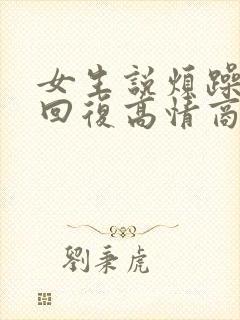 女生說煩躁
回復高情商
劉秉虎